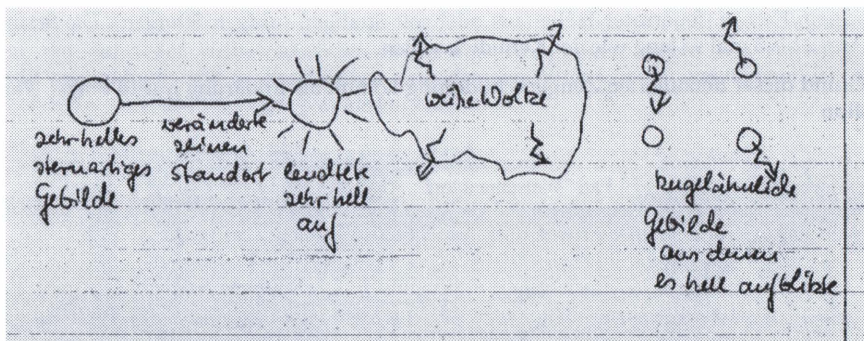 sehr helles
sternartiges
Gebilde
veränderte
seinen
Standort
leuchtete
sehr hell
auf
weiße Wolke
kugelähnliche
Gebilde
aus denen
es hell aufblitzte